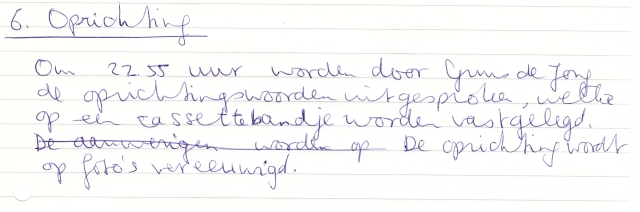 6. Oprichting
Om 22.55 uur worden door Guus de Jong
de oprichtingswoorden uitgesproken, welke
op een cassettebandje worden vastgelegd.
De aanwezigen worden op De oprichting wordt
op foto's vereeuwigd.